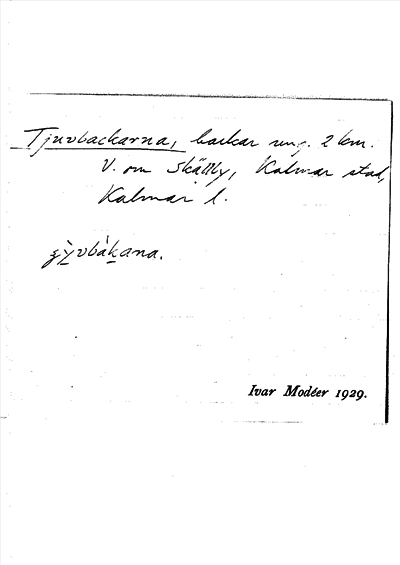 Tjuvbackarna, backar ung. 2 km.
V. om Skälby, Kalmar stad,
Kalmar l.
Ivar Modéer 1929.